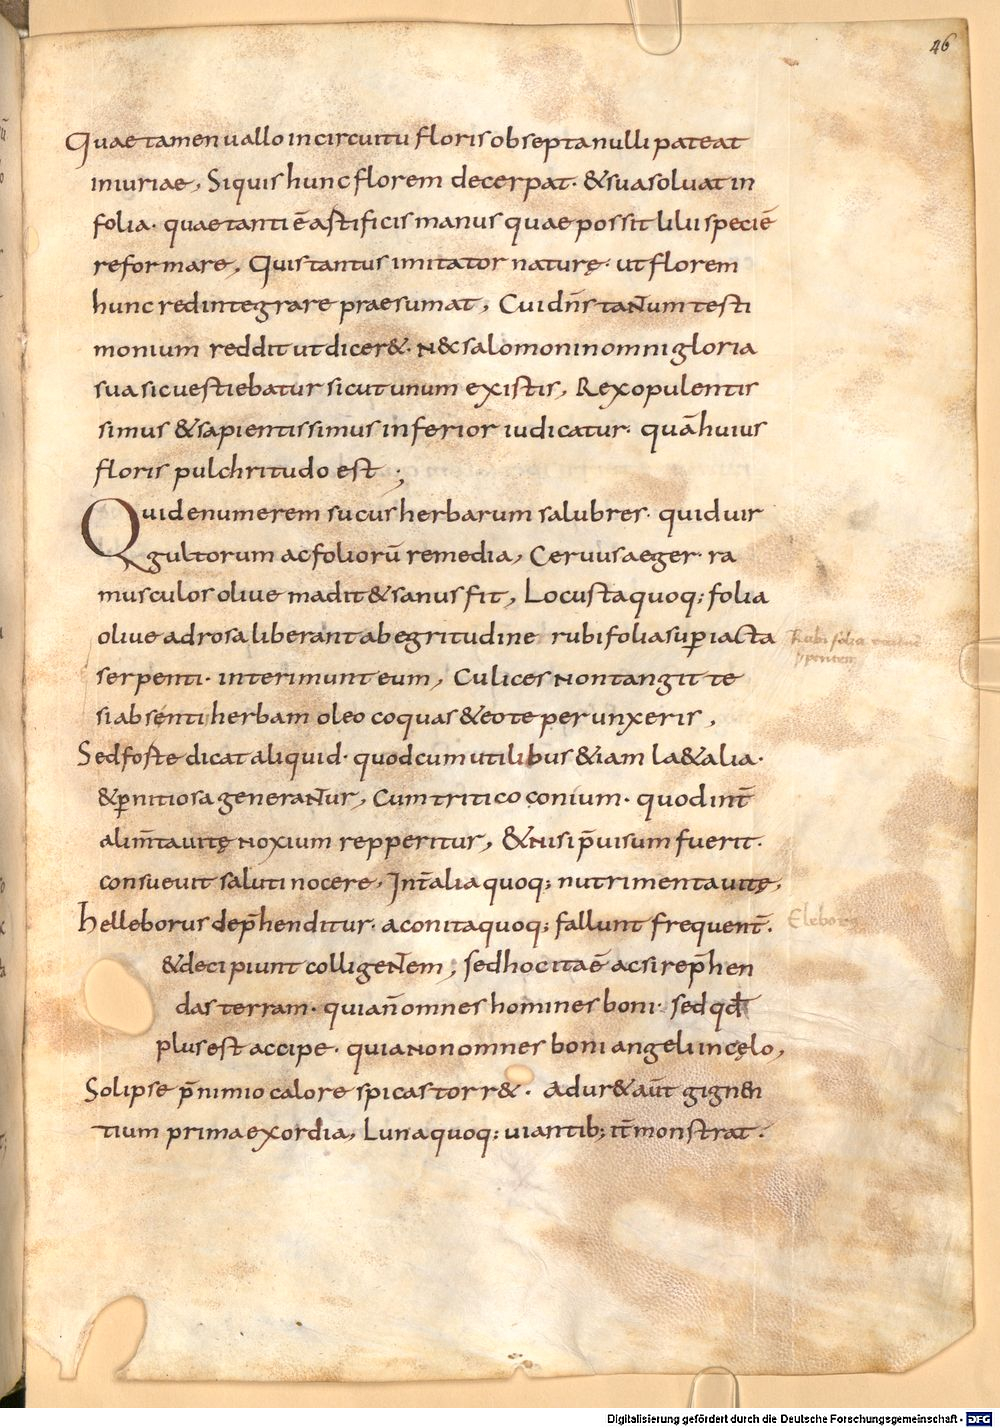 46
Quae tamen uallo in circuitu floris obsepta nulli pateat
iniuriae, Siquis hunc florem decerpat· & sua soluat in
folia· quae tanti ē artificis manus quae possit lilii speciē
reformare, Quis tantus imitator naturę· ut florem
hunc redintegrare praesumat, Cui dn̄s tantum testi
monium reddit ut dicer&· nec salomon in omni gloria
sua sic uestiebatur sicut unum ex istis, Rex opulentis
simus & sapientissimus inferior iudicatur· quā huius
floris pulchritudo est ;
Quid enumerem sucus herbarum salubres· quid uir
gultorum ac foliorū remedia, Ceruus aeger· ra
musculos oliue madit & sanus fit, Locusta quoq; folia
oliue adrosa liberant ab egritudine rubi folia sup̱iacta
Rubi folia
serpentem
serpenti· interimunt eum, Culices non tangit te
si absenti herbam oleo coquas & eo te perunxeris,
Sed forte dicat aliquid· quod cum utilibus &iam l&alia·
& p̱nitiosa generantur, Cum tritico conium· quod int̄
alim̄ta uitę noxium repperitur, & nisi p̄uisum fuerit·
consueuit saluti nocere, Int̄ alia quoq; nutrimenta uitę,
helleborus dep̄henditur· aconita quoq; fallunt frequent̄·
Eleborus
& decipiunt colligentem, sed hoc ita ē ac si rep̄hen
das terram· quia n̄ omnes homines boni· sed qđ
plus est accipe· quia non omnes boni angeli in cęlo,
Sol ipse p̄ nimio calore spicas torr&· Adur& aūt gignen
tium prima exordia, Luna quoq; uiantib; it̄ monstrat·
Digitalisierung gefördert durch die Deutsche Forschungsgemeinschaft - DFG